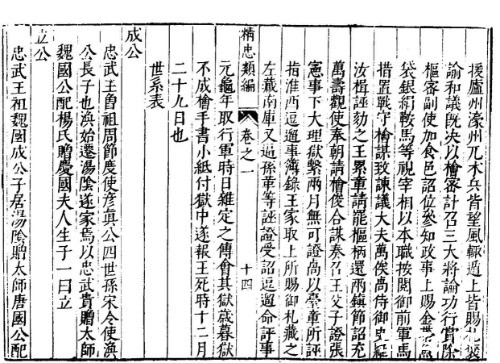 援廬州濠州兀术兵皆望風輒遁上皆賜札褒
諭和議既决以檜密計召三大將論功行賞除
樞密副使加食邑詔位參知政事上賜金帶魚
袋銀絹鞍馬等視宰相以本職按閱御前軍馬
措置戰守檜謀致諫議大夫万俟卨侍御史
汝楫誣劾之王累章請罷樞柄還兩鎮節詔充
萬壽觀使奉朝請檜俊合謀奏召王父子證張
憲事下大理獄繫兩月無可證卨以臺章所評
指淮西逗遛事簿錄王家取上所賜御札藏之
左藏南庫又逼孫革等誣證受詔逗遛命評事
元龜年取行軍時日雜定之傅會其獄歲暮獄
不成檜手書小紙付獄中遂報王死時十二月
二十九日也
世系表
精忠類編
卷之一
十四
成公
忠武王曾祖周節度使彥真公四世孫宋令使渙
公長子也渙始遷湯陰遂家焉以忠武貴贈太師
魏國公配楊氏贈慶國夫人生子一曰立
立公
忠武王祖魏國成公子居湯陰贈太師唐國公配